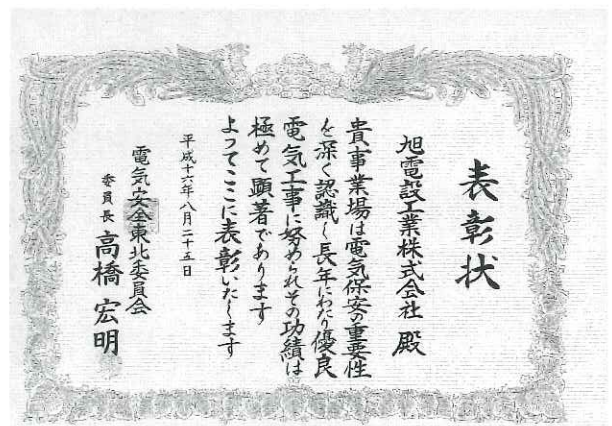 表彰状
旭電設工業株式会社 殿
貴事業場は電気保安の重要性
を深く認識し長年にわたり優良
電気工事に努められその功績は
極めて顕著であります
よってここに表彰いたします
平成十六年八月二十五日
電気安全東北委員会
委員長 高橋宏明